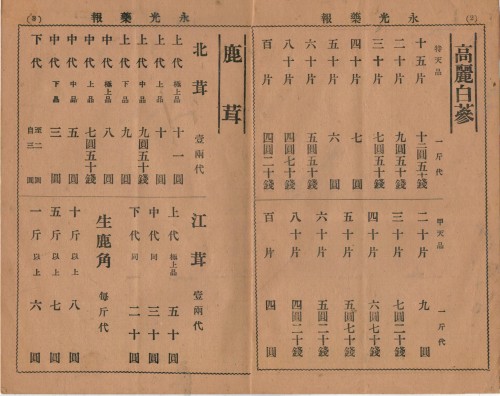 (2)
永光藥報
高麗白蔘
特天品 一斤代
十五片 圓五十錢
二十片 九圓五十錢
三十片 七圓五十錢
四十片 七圓
五十片 六圓
六十片 五圓五十錢
八十片 四圓七十錢
百片 四圓二十錢
甲天品 一斤代
二十片 九圓
三十片 七圓二十錢
四十片 六圓七十錢
五十片 五圓七十錢
六十片 五圓二十錢
八十片 四圓二十錢
百片 四圓
永光藥報
(3)
鹿茸
北茸 壹兩代
上代 極上品 十一圓
上代 上品 十圓
上代 中品 九圓五十錢
上代 下品 九圓
中代 極上品 八圓
中代 上品 七圓五十錢
中代 中品 五圓
中代 下品 三圓
下代 自三圓
至二圓
江茸 壹兩代
上代 極上品 五十圓
中代 同 三十圓
下代 同 二十圓
生鹿角 每斤代
十斤以上 八圓
五斤以上 七圓
一斤以上 六圓